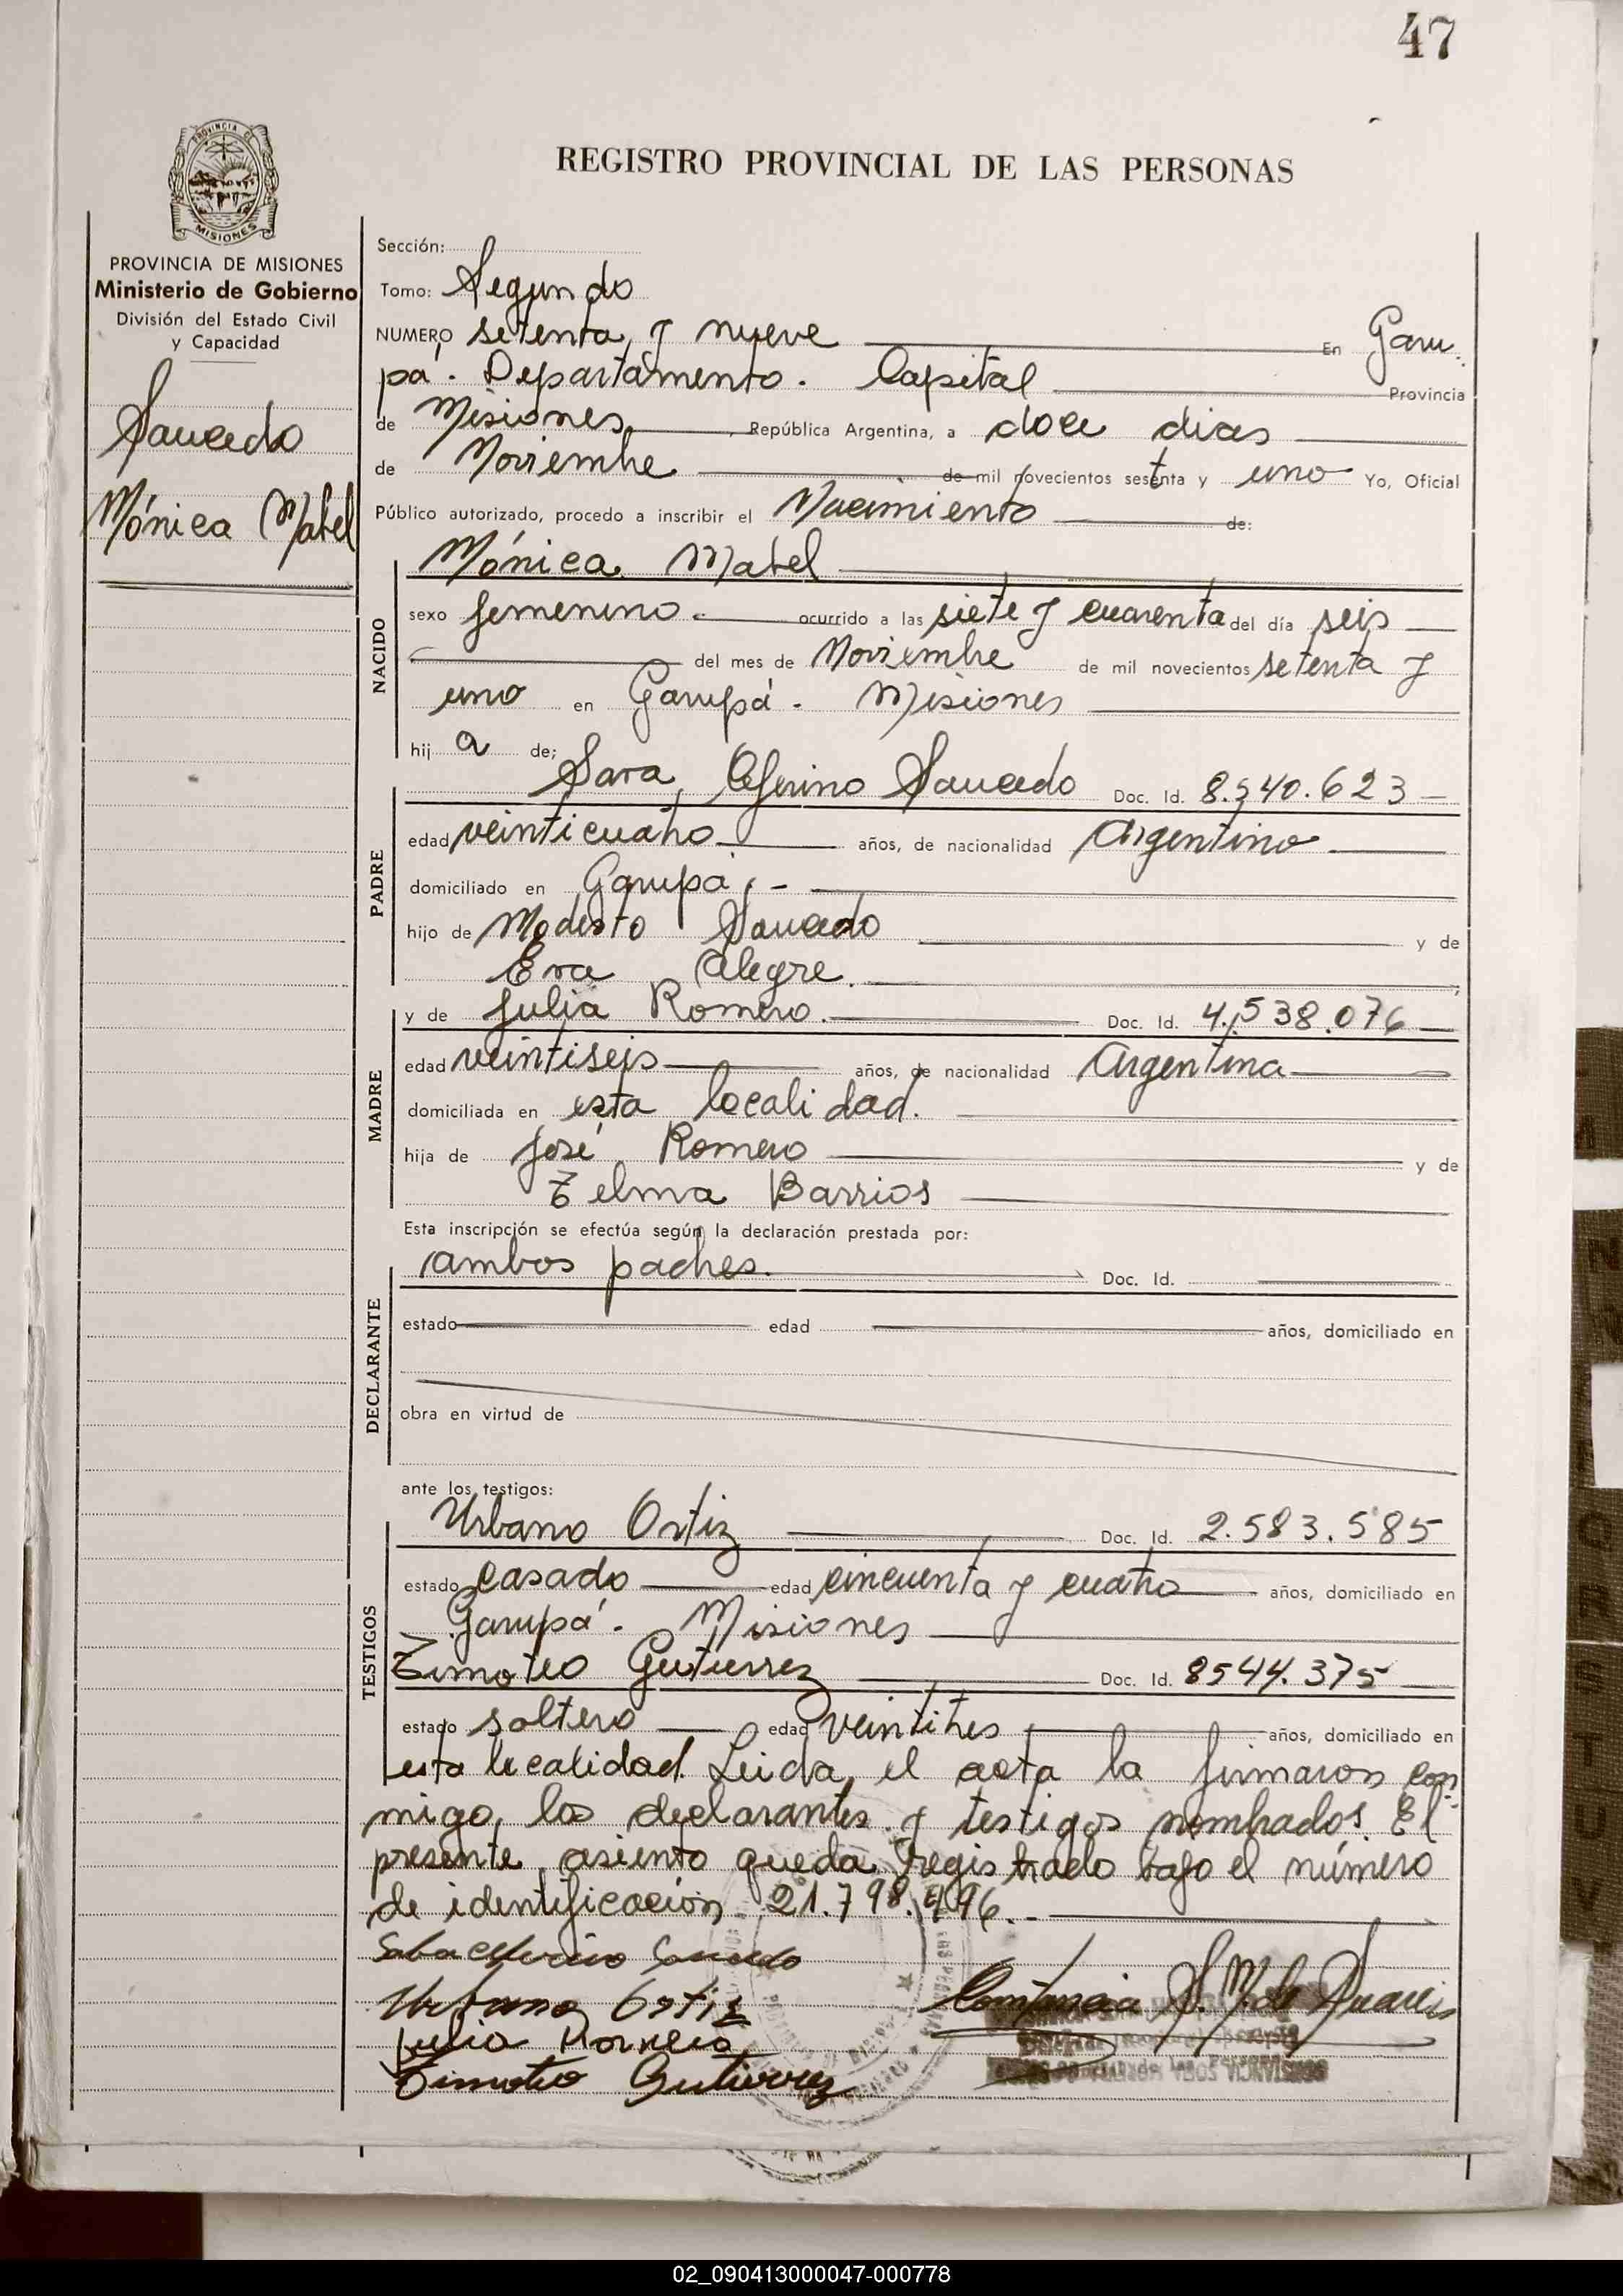 47
REGISTRO PROVINCIAL DE LAS PERSONAS
PROVINCIA DE
MISIONES
PROVINCIA DE MISIONES
Ministerio de Gobierno
División del Estado Civil
y Capacidad
Saucedo
Mónica Mabel
Sección:
Tomo: Segundo
NUMERO setenta y nueve En Garu-
pá. Departamento. Capital Provincia
de Misiones, República Argentina, a doce dias
de Noviembre de mil novecientos sesenta y uno Yo, Oficial
Público autorizado, procedo a inscribir el Nacimiento de:
Mónica Mabel
NACIDO
sexo femenino.- ocurrido a las siete y cuarenta del día seis
del mes de Noviembre de mil novecientos setenta y
uno en Garupá - Misiones
hij a de;
Sara Ceferino Saucedo Doc. Id. 8.540.623
PADRE
edad veinticuatro años, de nacionalidad Argentino
domiciliado en Garupá,-
hijo de Modesto Saucedo y de
Eva Alegre.
y de Julia Romero. Doc. Id. 4.538.076
MADRE
edad veintiseis años, de nacionalidad Argentina
domiciliada en esta localidad.
hija de José Romero y de
Telma Barrios
Esta inscripción se efectúa según la declaración prestada por:
ambos padres. Doc. Id.
DECLARANTE
estado edad años, domiciliado en
obra en virtud de
ante los testigos:
Urbano Ortiz Doc. Id. 2.583.585
TESTIGOS
estado casado edad cincuenta y cuatro años, domiciliado en
Garupá. Misiones
Timoteo Gutierrez Doc. Id. 8544.375
estado soltero edad veintitres años, domiciliado en
esta localidad. Leida, el acta la firmaron con-
migo, los declarantes y testigos nombrados. El
presente asiento queda registrado bajo el número
de identificación 21.798.996.-
Saucedo
Urbano Ortiz
Julia Romero
Timoteo Gutierrez
02_090413000047-000778